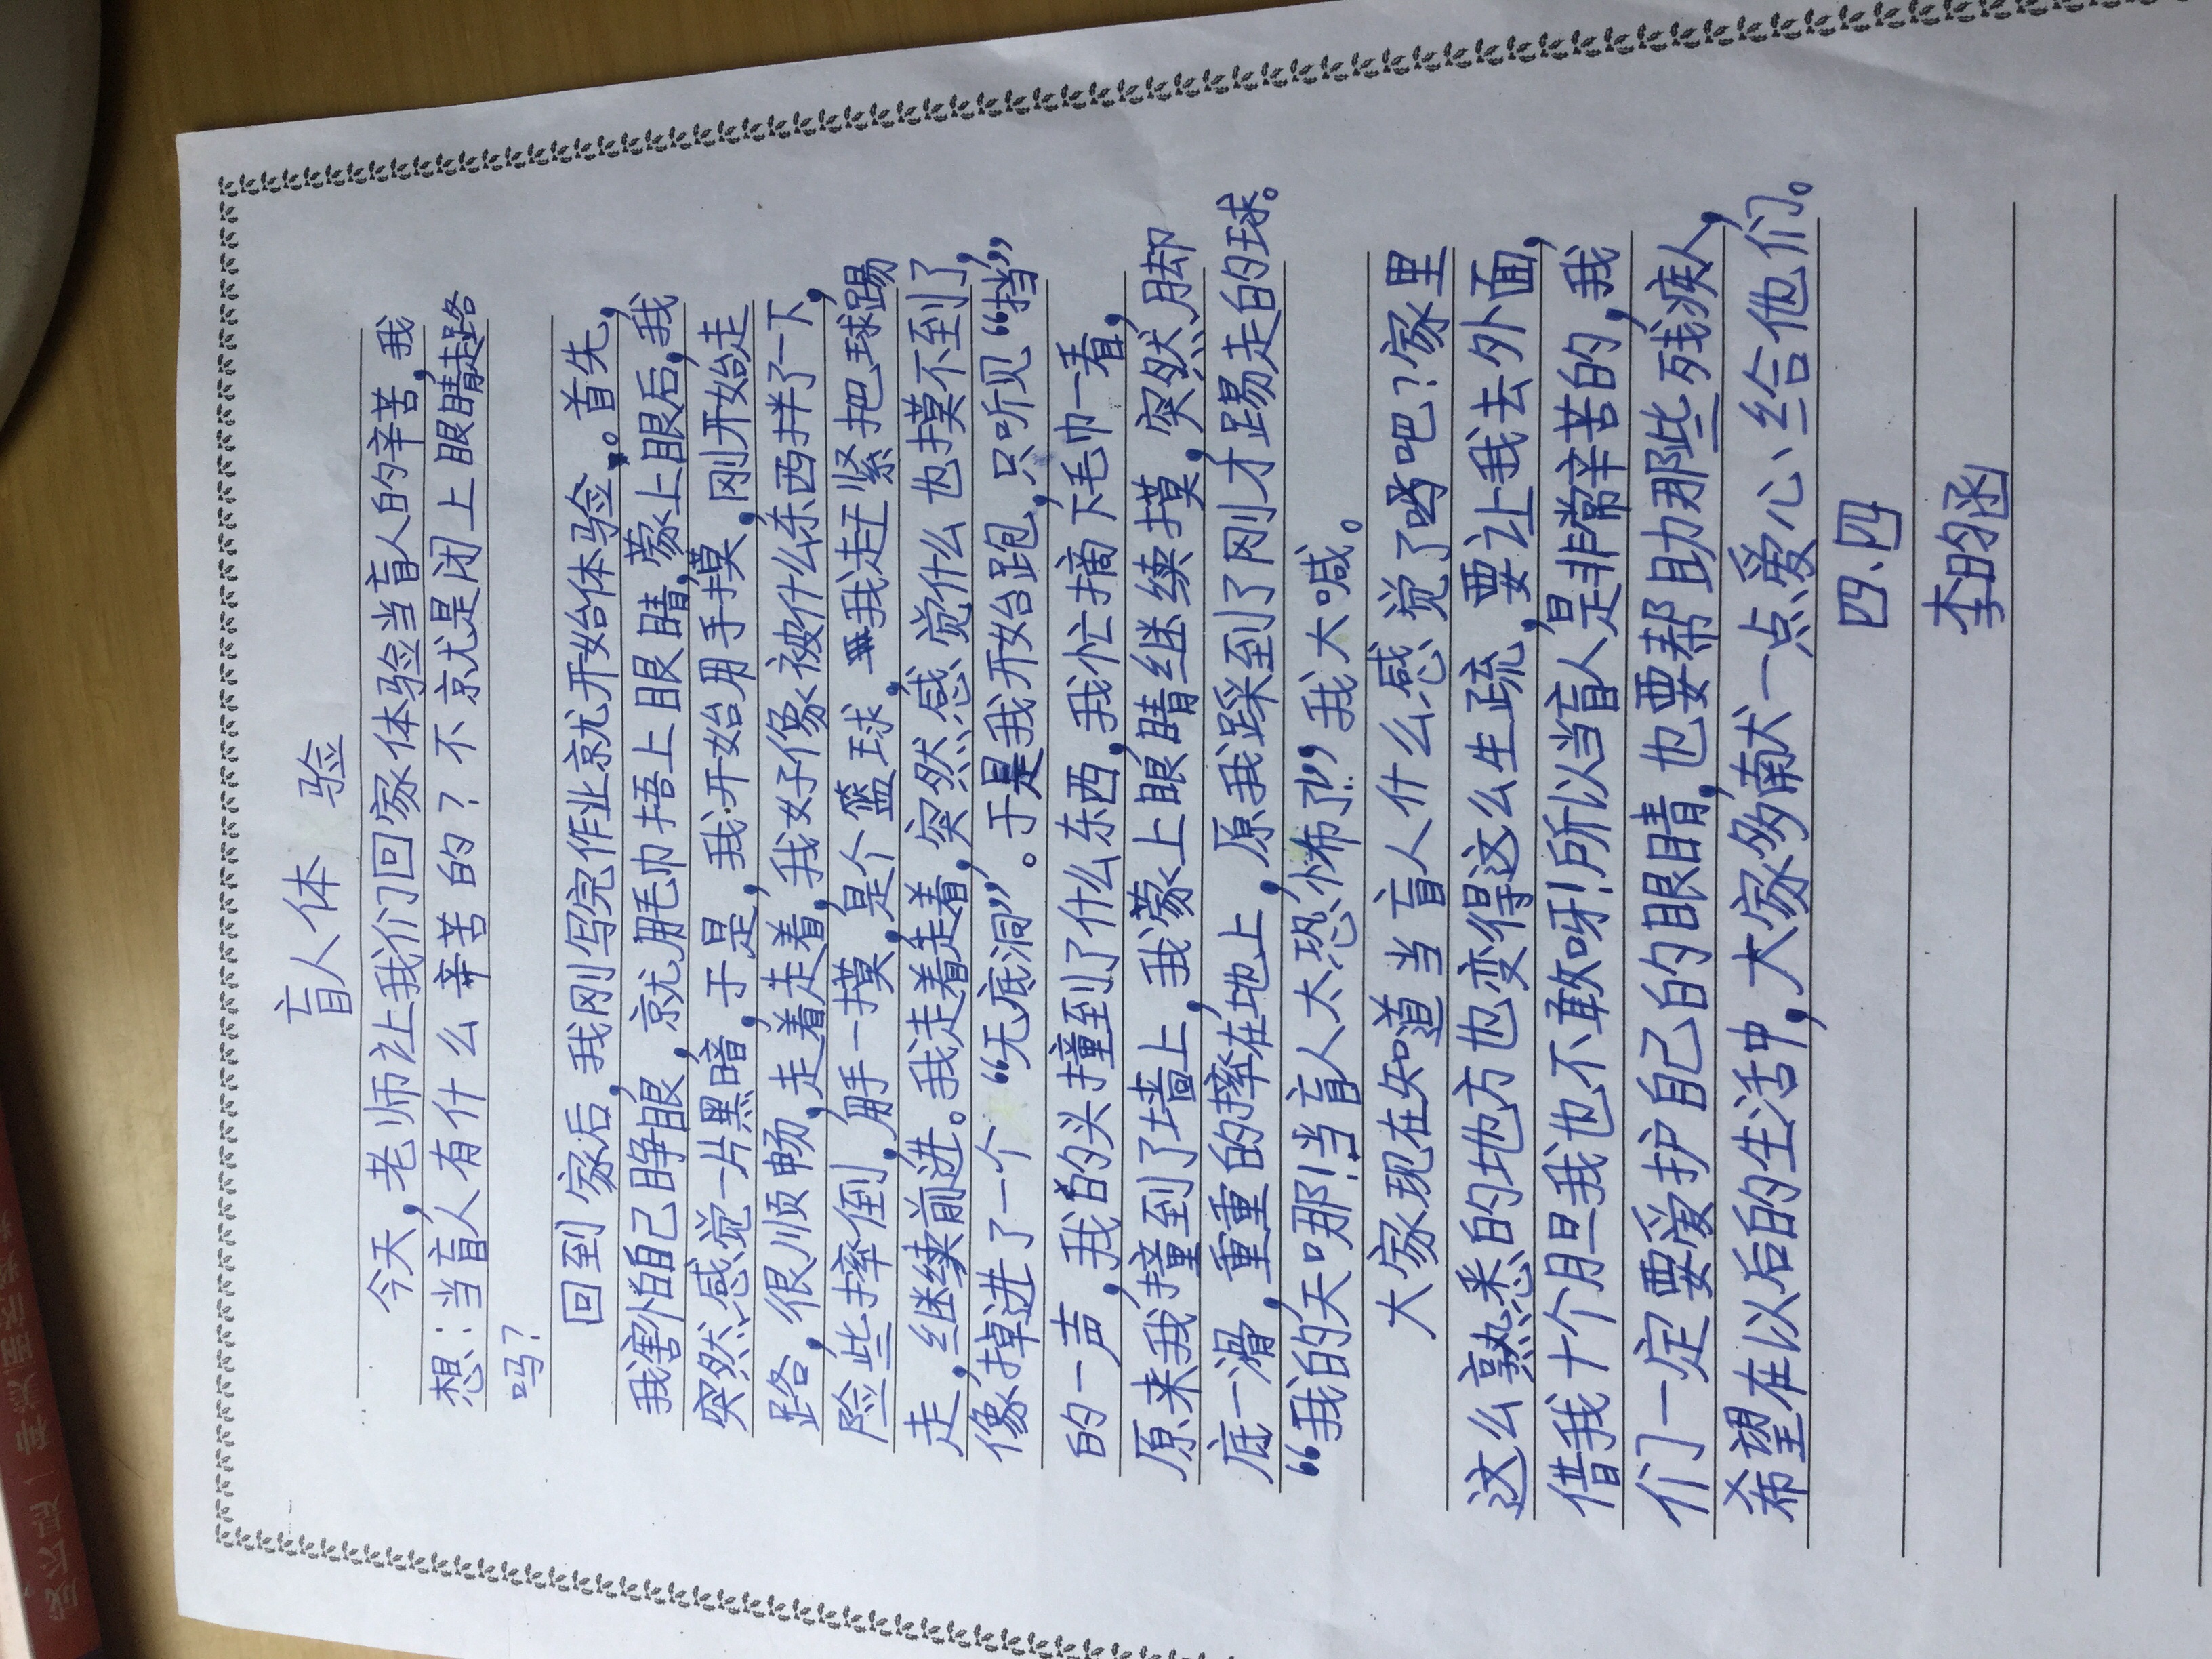 盲人体 验
今天,老师让我们回家体验当盲人的辛苦,我
想:当盲人有什么辛苦的?不就是闭上眼睛走路
吗?
回到家后,我刚写完作业就开始体验。首先,
我害怕自己睁眼,就用毛巾捂上眼睛,蒙上眼后,我
突然感觉一片黑暗,于是,我开始用手摸,刚开始走
路,很顺畅,走着走着,我好像被什么东西拌了一下,
险些摔倒,用手一摸,是个篮球,我走赶紧把球踢
走,继续前进。我走着走着,突然感觉什么也摸不到了,
像掉进了一个“无底洞”。于是我开始跑,只听见“挡”
的一声,我的头撞到了什么东西,我忙摘下毛巾一看,
原来我撞到了墙上,我蒙上眼睛继续摸,突然,脚
底一滑,重重的摔在地上,原我踩到了刚才踢走的球。
“我的天哪!当盲人太恐怖了!”我大喊。
大家现在知道当盲人什么感觉了吧?家里
这么熟悉的地方也变得这么生疏,要让我去外面,
借我十个胆我也不敢呀!所以当盲人是非常辛苦的,我
们一定要爱护自己的眼睛,也要帮助那些残疾人,
希望在以后的生活中,大家多献一点爱心给他们。
四、四
李昀函